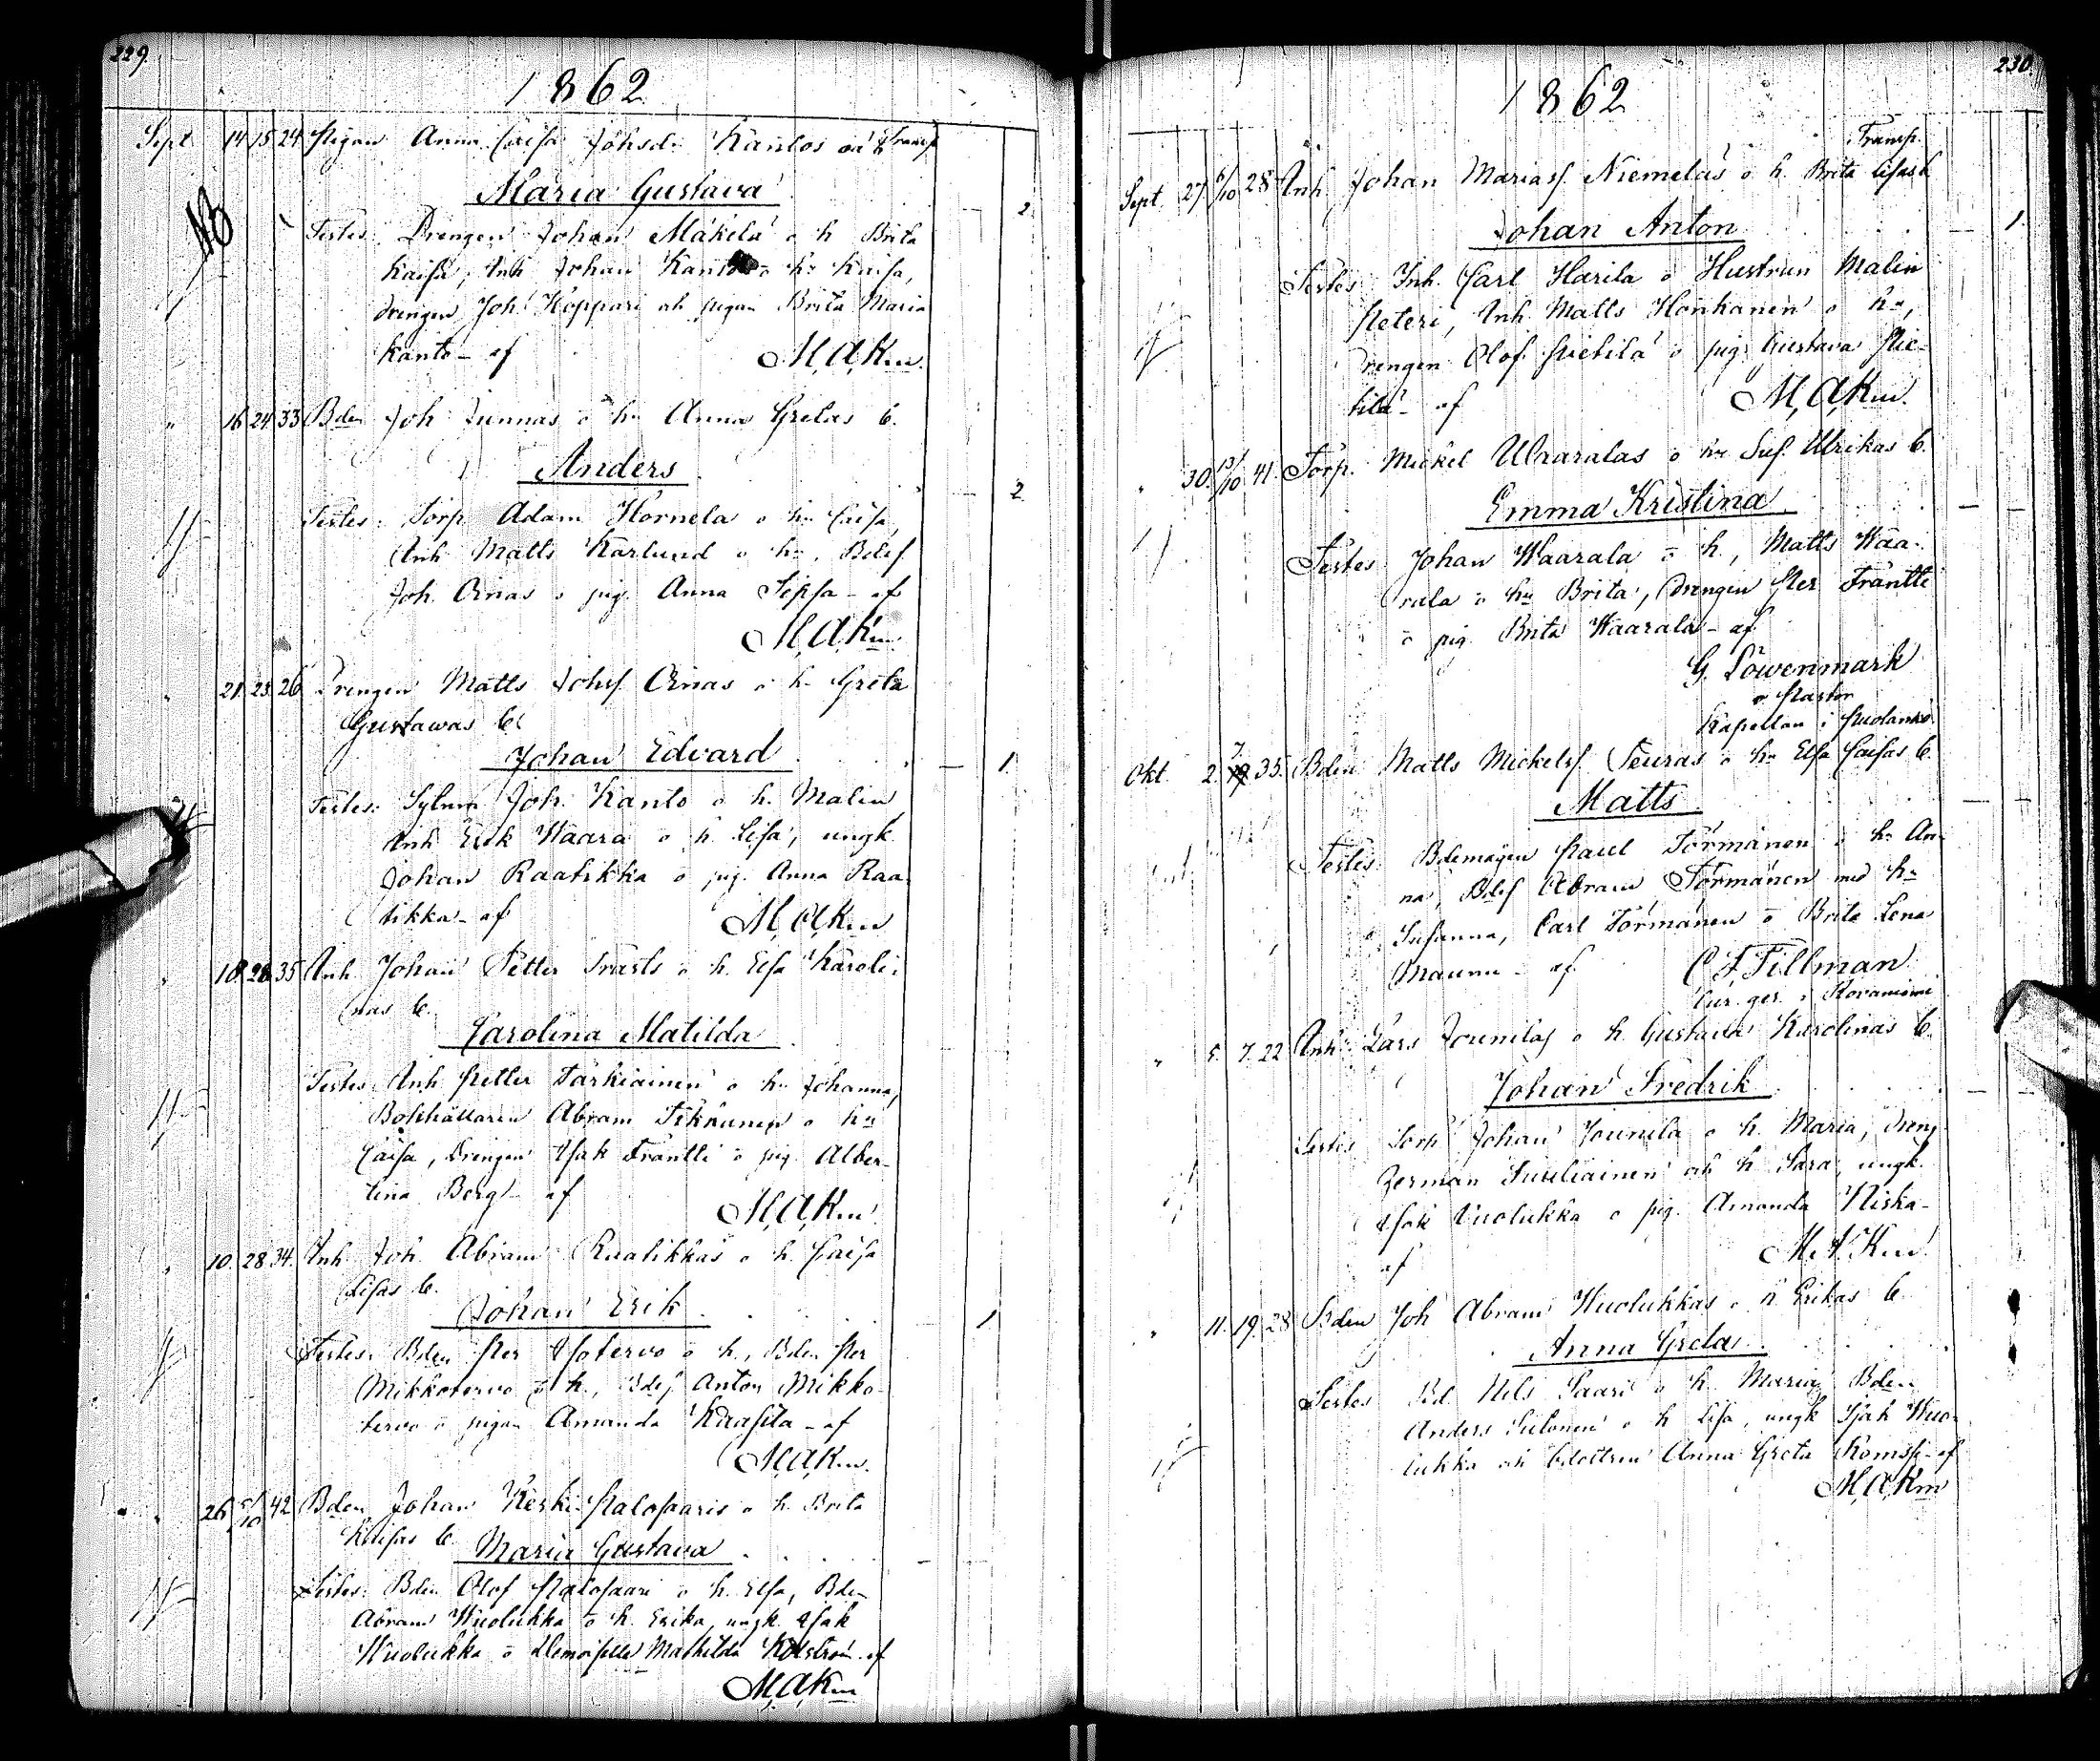 229.
1862
Sept 14 15 24 Pigan Anna Caisa Johsdr Kantos oä b Transp
Maria Gustava
2.
NB
Testes: Drengen Johan Mäkelä o h Brita
Kaisa, Inh Johan o hu Kaisa,
drengen Joh Koppari och pigan Brita Maria
Kanto - af M,A,Km.
" 16 24 33 Bden Joh Junnas o hu Anna Gretas b.
Anders
2
Testes: Torp Adam Hornela o hu Caisa,
Inh Matts Karlund o hu, Bdes
Joh. o pig Anna Seppa - af
M,A,Km.
" 21. 23. 26 Drengen Matts Johs o h. Greta
Gustawas b.
Johan Edvard
1.
Testes: Sytn Joh. Kanto o h. Malin
Inh Erik Waara o h. Lisa, ungk.
Johan Raatikka o pig. Anna Raa
tikka - af M,A,Km
" 18 28 35 Inh Johan Petter o h. Elsa Karoli:
nas b.
Carolina Matilda
Testes: Inh Petter Tarkiainen o hu Johanna,
Bokhållaren Abram Tikkanen o hu
Caisa, Drengen Isak Fräntti o pig Alber-
tina Berg - af
M,A,Km.
" 10. 28 34. Inh Joh. Abram Raatikkas o h. Caisa
Lisas b.
Johan Erik
1
Testes: Bden Per Isotervo o h., Bden Per
Mikkotervo o h., Bdes Anton Mikko-
tervo o pigan Amanda - af
M,A,Km.
" 26 5/10 42 Bden Johan Keski-Palosaaris o h. Brita
Kaisas b. Maria Gustava
Testes: Bden Olof Palosaari o h. Elsa, Bden
Abram Wuolukka o h. Erika, ungk. Isak
Wuolukka o Demoiselle Mathilda - af
M,A,Km
230.
1862
Transp.
Sept. 27. 6/10 28 Inh Johan Mariass. Niemeläs o h. Brita Lisas b
Johan Anton
1.
Testes: Inh. Carl Harila o Hustrun Malin
Peteri, Inh. Matts Honkanen o hu,
Drengen Olof Pietilä o pig Gustava Pie-
tilä - af M,A,Km.
" 30. 13/10 41. Torp. Mickel Waaralas o hu Sus. Ulrikas b.
Emma Kristina
Testes: Johan Waarala o h, Matts Waa-
rala o hu Brita, Drengen Per Fräntti
o pig. Brita Waarala - af
G. Löwenmark
v. Pastor
Kapellan i Puolanko
Okt. 2. 7 35. Bden Matts Mickelss. Teuras o hu Elsa Caisas b.
Matts
Testes: Bdemågen Paul Törmänen o hu An-
na, Bdes Abram Törmänen med hu
Susanna, Carl Törmänen o Brita Lena
Maunu - af C F Tillman
Cur. ger. i Rovaniemi
" 5. 7. 22 Inh: Lars Jounilas o h Gustava Karolinas b.
Johan Fredrik
Testes Torp Johan Jounila o h. Maria, dreng
Zerman och h. Sara, ungk.
Isak Vuolukka o pig. Amanda Niska-
af M.A.Km.
" 11. 19. 28 Bden Joh Abram Wuolukkas o h Erikas b
Anna Greta
Testes Bd. Nils Saari o h. Maria, Bden
Anders o h Lisa, ungk Isak Wuo-
lukka och bdottren Anna Greta Komsi - af
M,A,Km